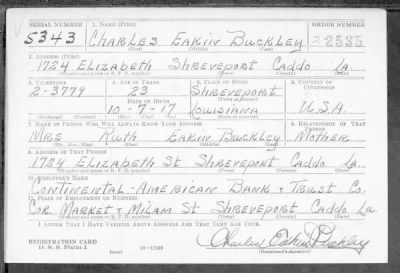 SERIAL NUMBER 1. NAME (Print) ORDER NUMBER
5343 CHARLES EAKIN BUCKLEY 2535
(First) (Middle) (Last)
2. ADDRESS (Print)
1784 ELIZABETH SHREVEPORT CADDO LA.
(Number and street or R. F. D. number) (Town) (County) (State)
3. TELEPHONE 4. AGE IN YEARS 5. PLACE OF BIRTH 6. COUNTRY OF CITIZENSHIP
2-3779 23 SHREVEPORT
DATE OF BIRTH (Town or county)
10-7-17 LOUISIANA U.S.A.
(Exchange) (Number) (Mo.) (Day) (Yr.) (State or country)
7. NAME OF PERSON WHO WILL ALWAYS KNOW YOUR ADDRESS 8. RELATIONSHIP OF THAT PERSON
MRS RUTH EAKIN BUCKLEY MOTHER
(Mr., Mrs., Miss) (First) (Middle) (Last)
9. ADDRESS OF THAT PERSON
1784 ELIZABETH ST SHREVEPORT CADDO LA.
(Number and street or R. F. D. number) (Town) (County) (State)
10. EMPLOYER'S NAME
CONTINENTAL-AMERICAN BANK & TRUST CO.
11. PLACE OF EMPLOYMENT OR BUSINESS
COR MARKET & MILAM ST SHREVEPORT CADDO LA.
(Number and street or R. F. D. number) (Town) (County) (State)
I AFFIRM THAT I HAVE VERIFIED ABOVE ANSWERS AND THAT THEY ARE TRUE.
REGISTRATION CARD Charles Eakin Buckley
D. S. S. Form 1 (over) 16-17105 (Registrant's signature)